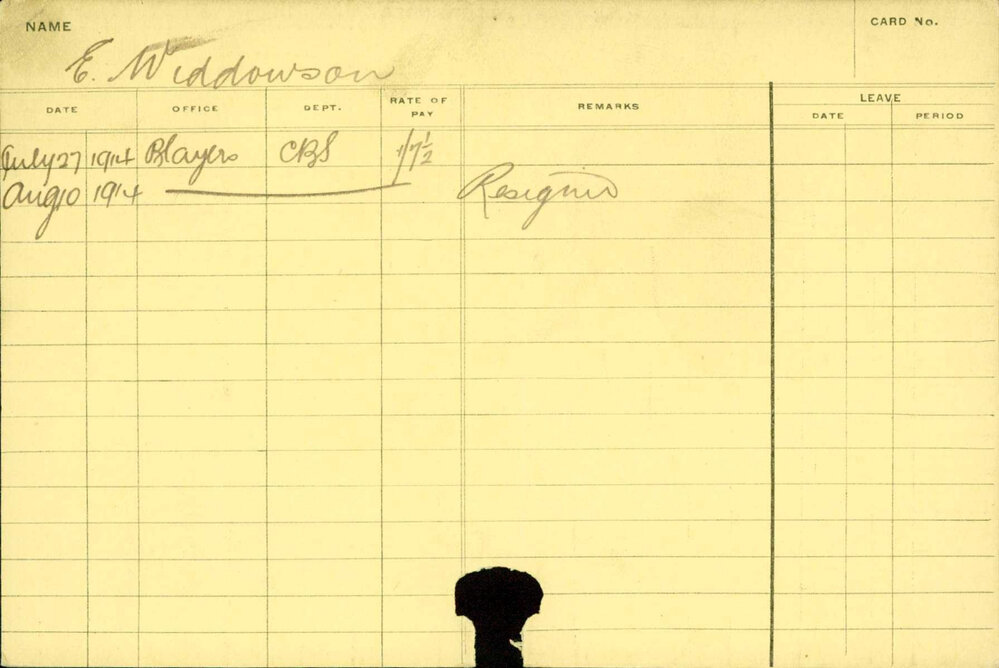 NAME
CARD No.
E. Widdowson
DATE OFFICE DEPT. RATE OF PAY REMARKS LEAVE
DATE PERIOD
July 27 1914 CBS 1/7½
Aug 10 1914 Resigned